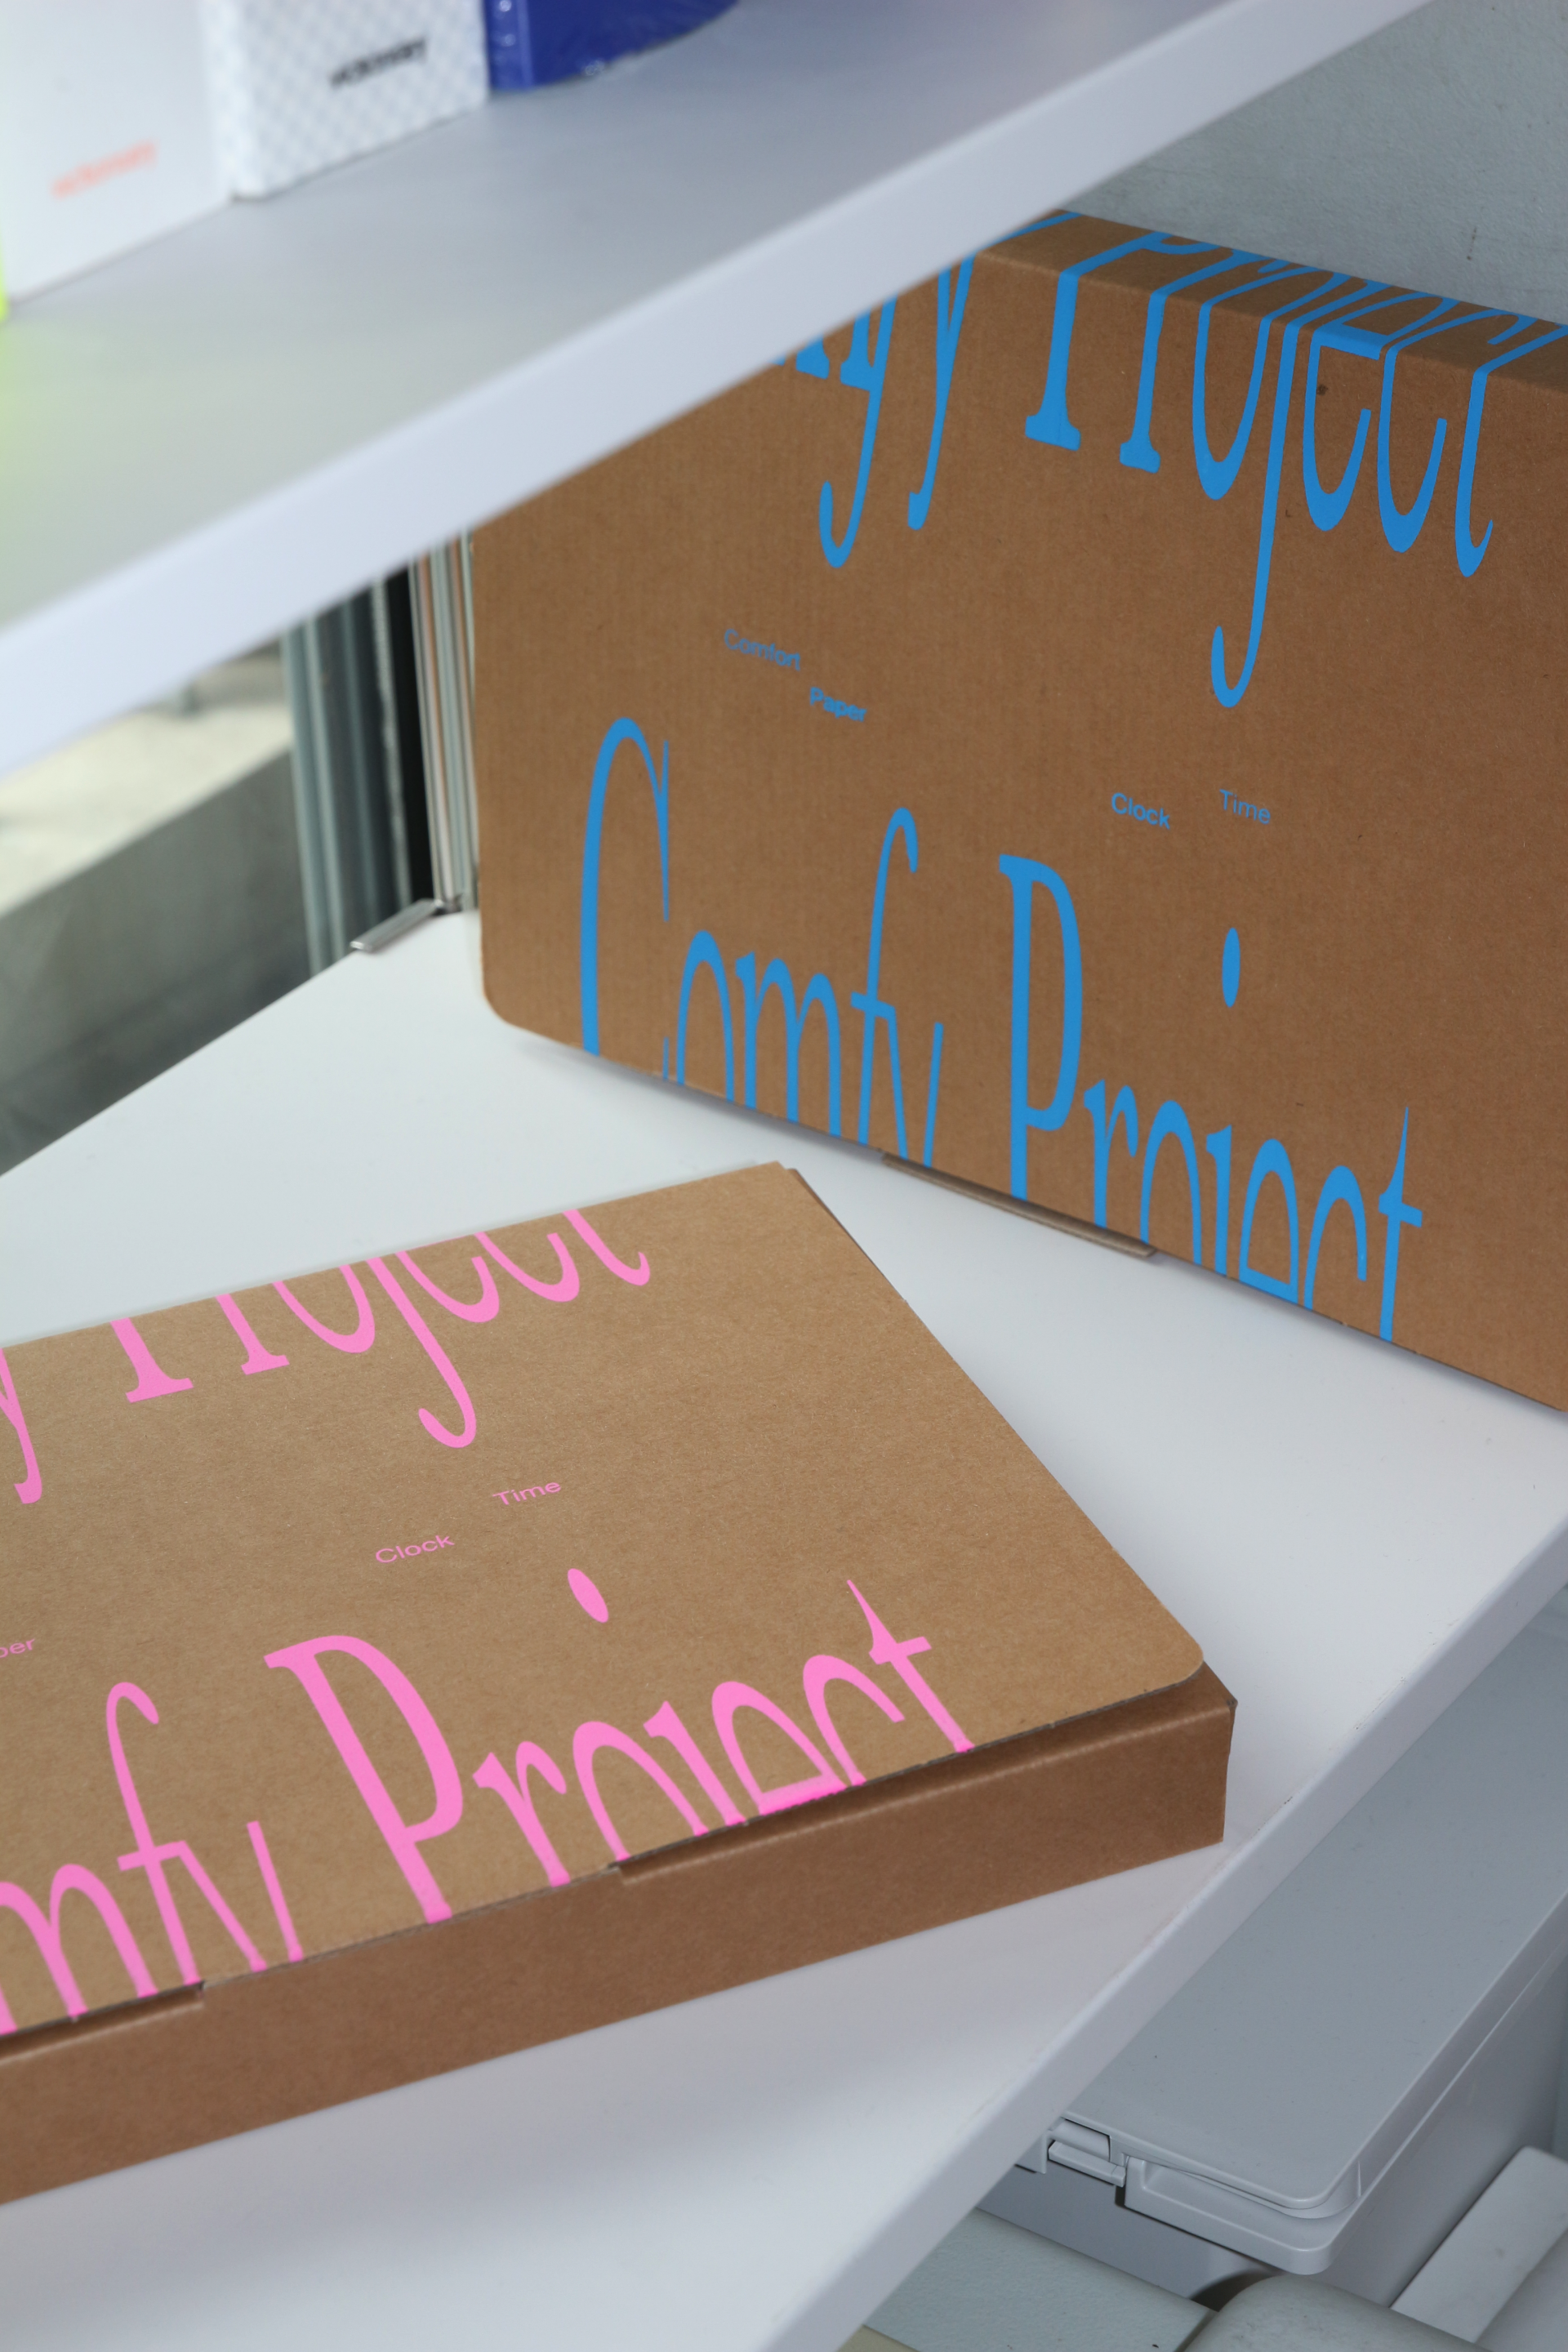 mfy Project
Comfort
Paper
Clock Time
Comfy Project
y Project
Time
Clock
per
mfy Project